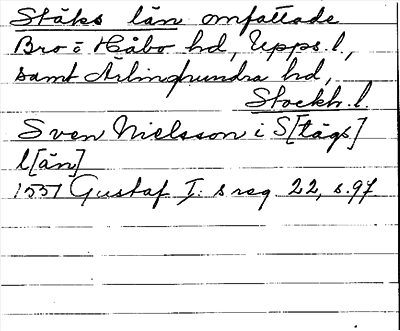 Stäks län omfattade
Bro o Håbo hd, Upps. l.,
samt Ärlinghundra hd,
Stockh. l.
Sven Nielsson i S[tägs]
l[än]
1551 Gustaf I:s reg 22, s. 97